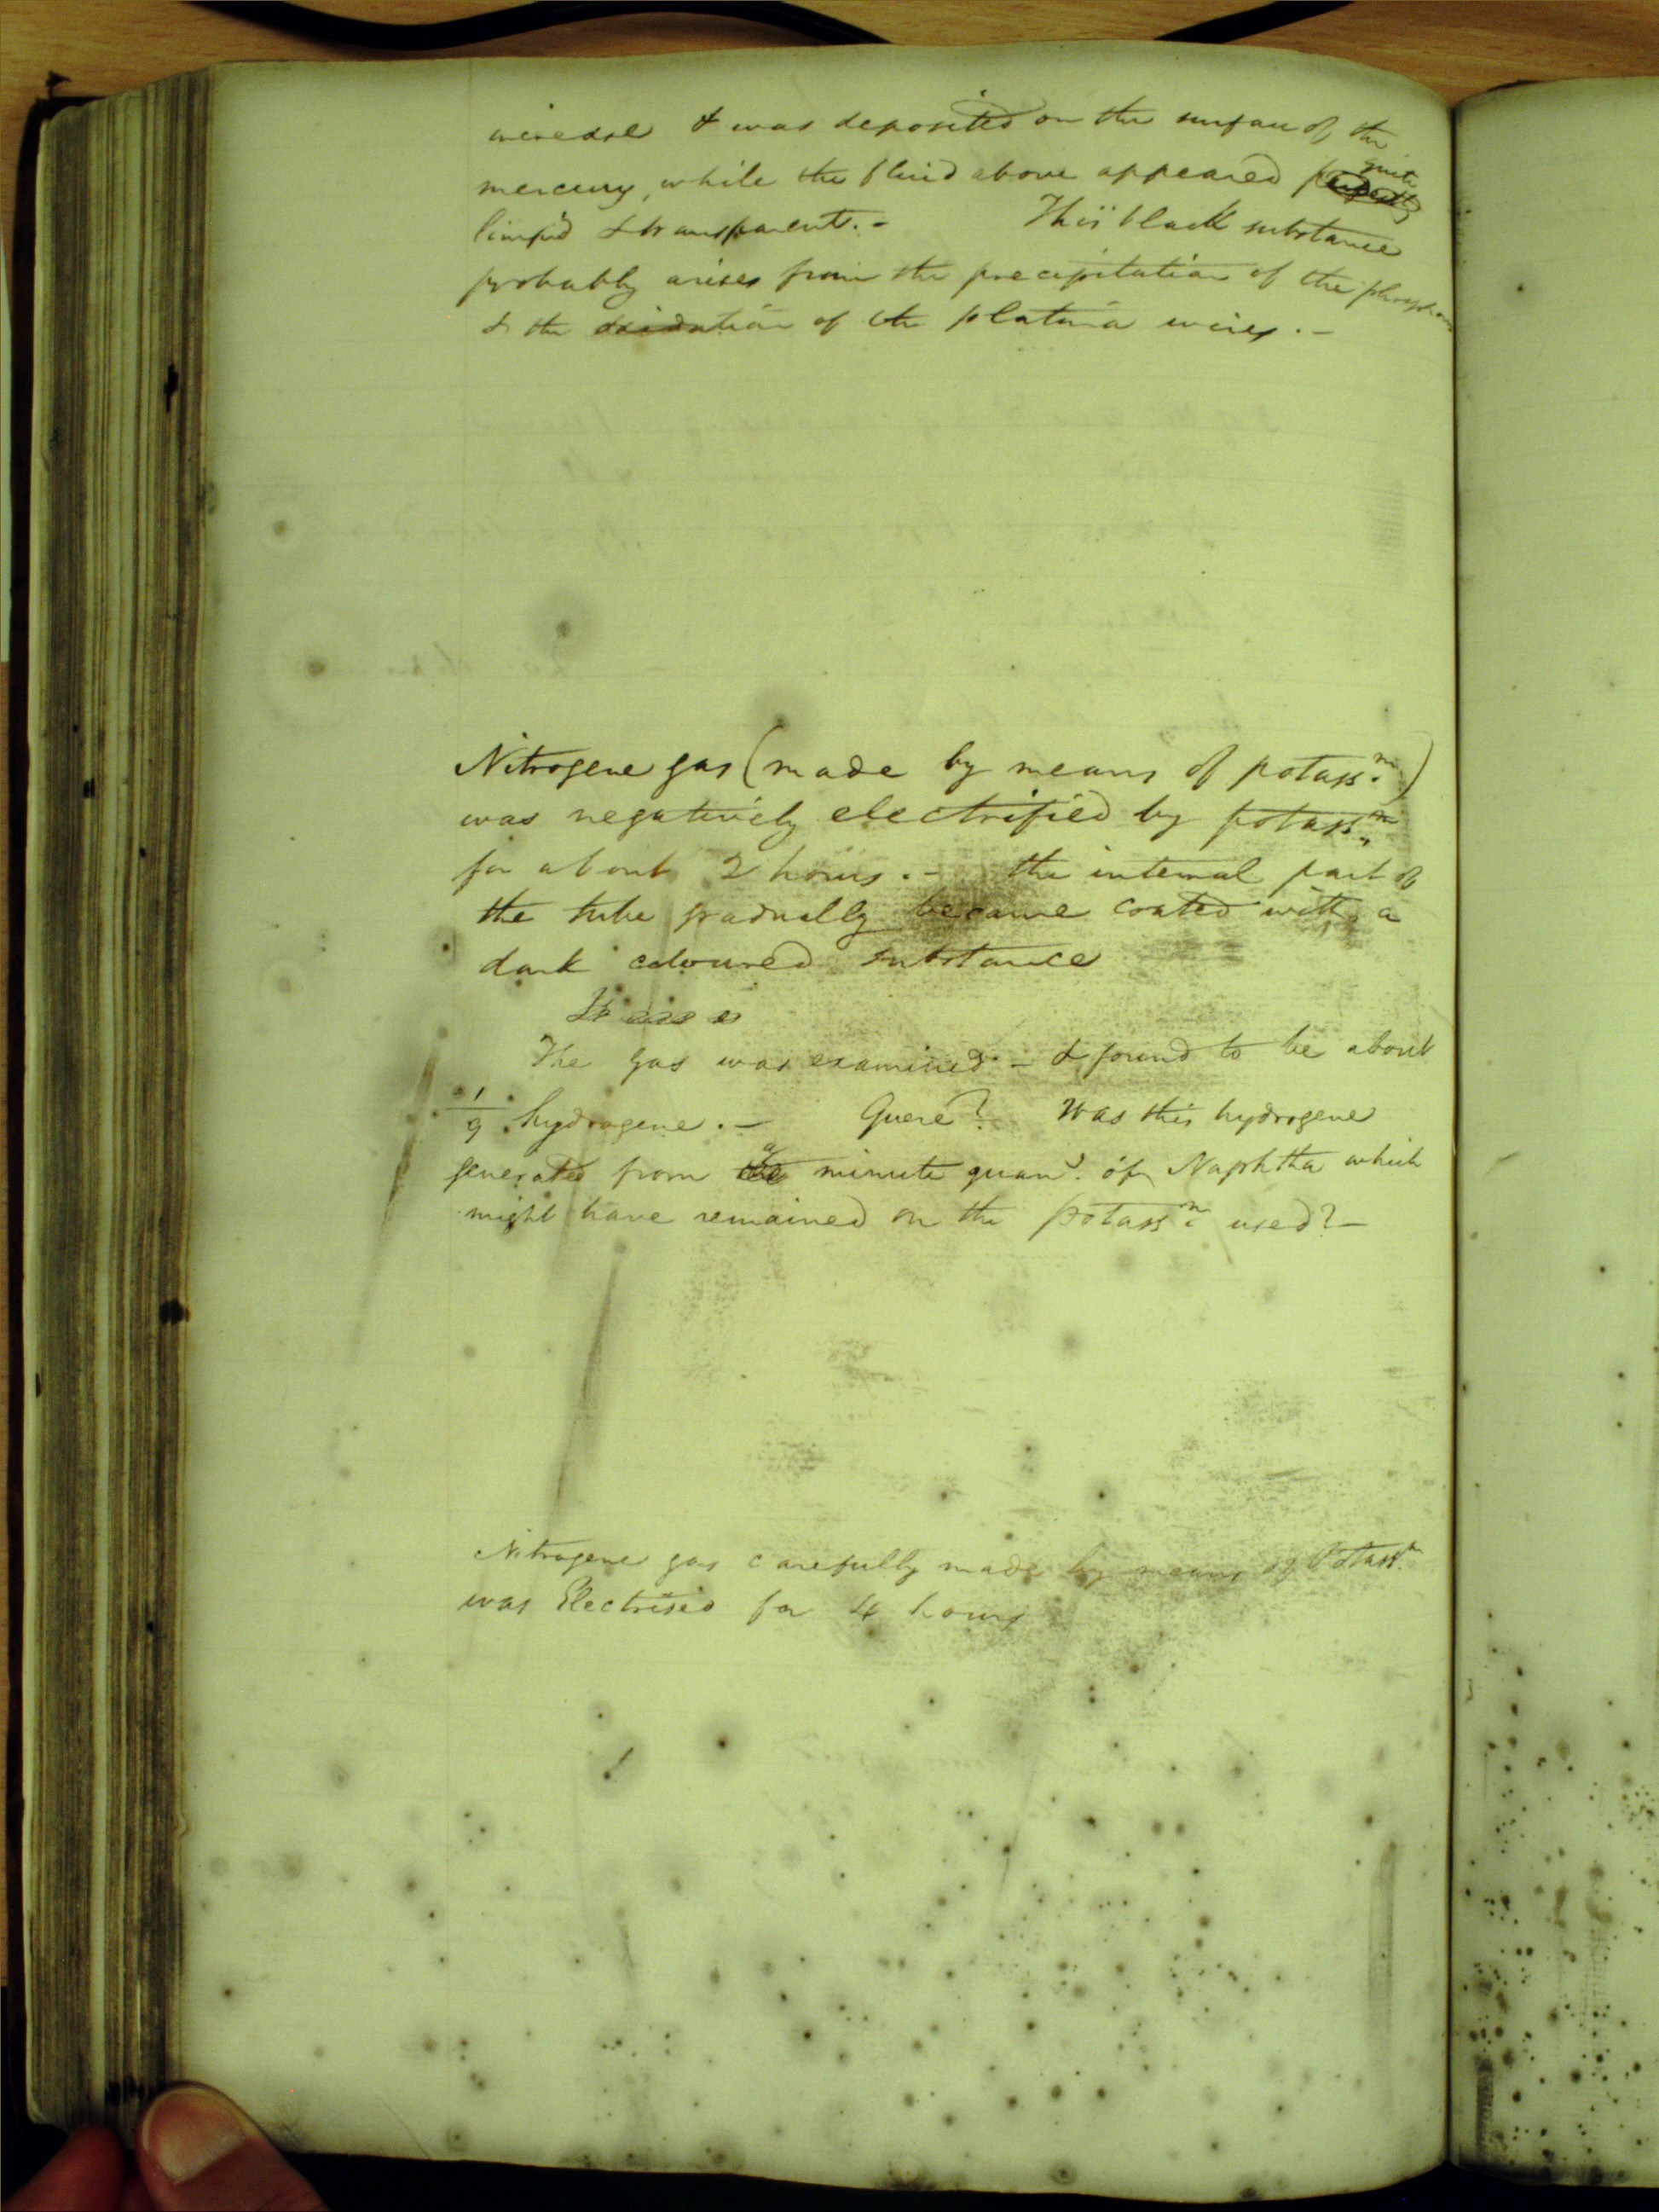 increase & was deposited on the surface of the
mercury, while the fluid above appeared perfectly quite
limpid & transparent. - This black substance
probably arises from the precipitation of the phosphorus
& the oxidation of the platina wires. -
Nitrogene gas (made by means of potassm.)
was negatively electrified by potassm.
for about 2 hours. - the internal part of
the tube gradually became coated with a
dark coloured substance
It was
The gas was examined - & found to be about
1/9 hydrogene. - Quere? Was this hydrogene
generated from the a minute quany. of Naphtha which
might have remained on the potassm. used? -
Nitrogene gas carefully made by means of Potassm.
was Electrised for 4 hours